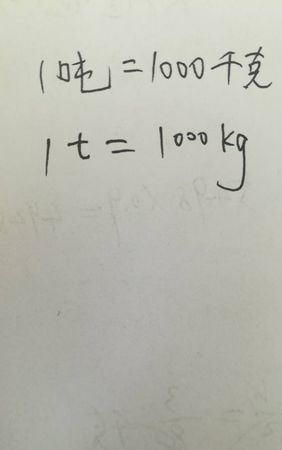 1吨=1000千克
1t=1000kg